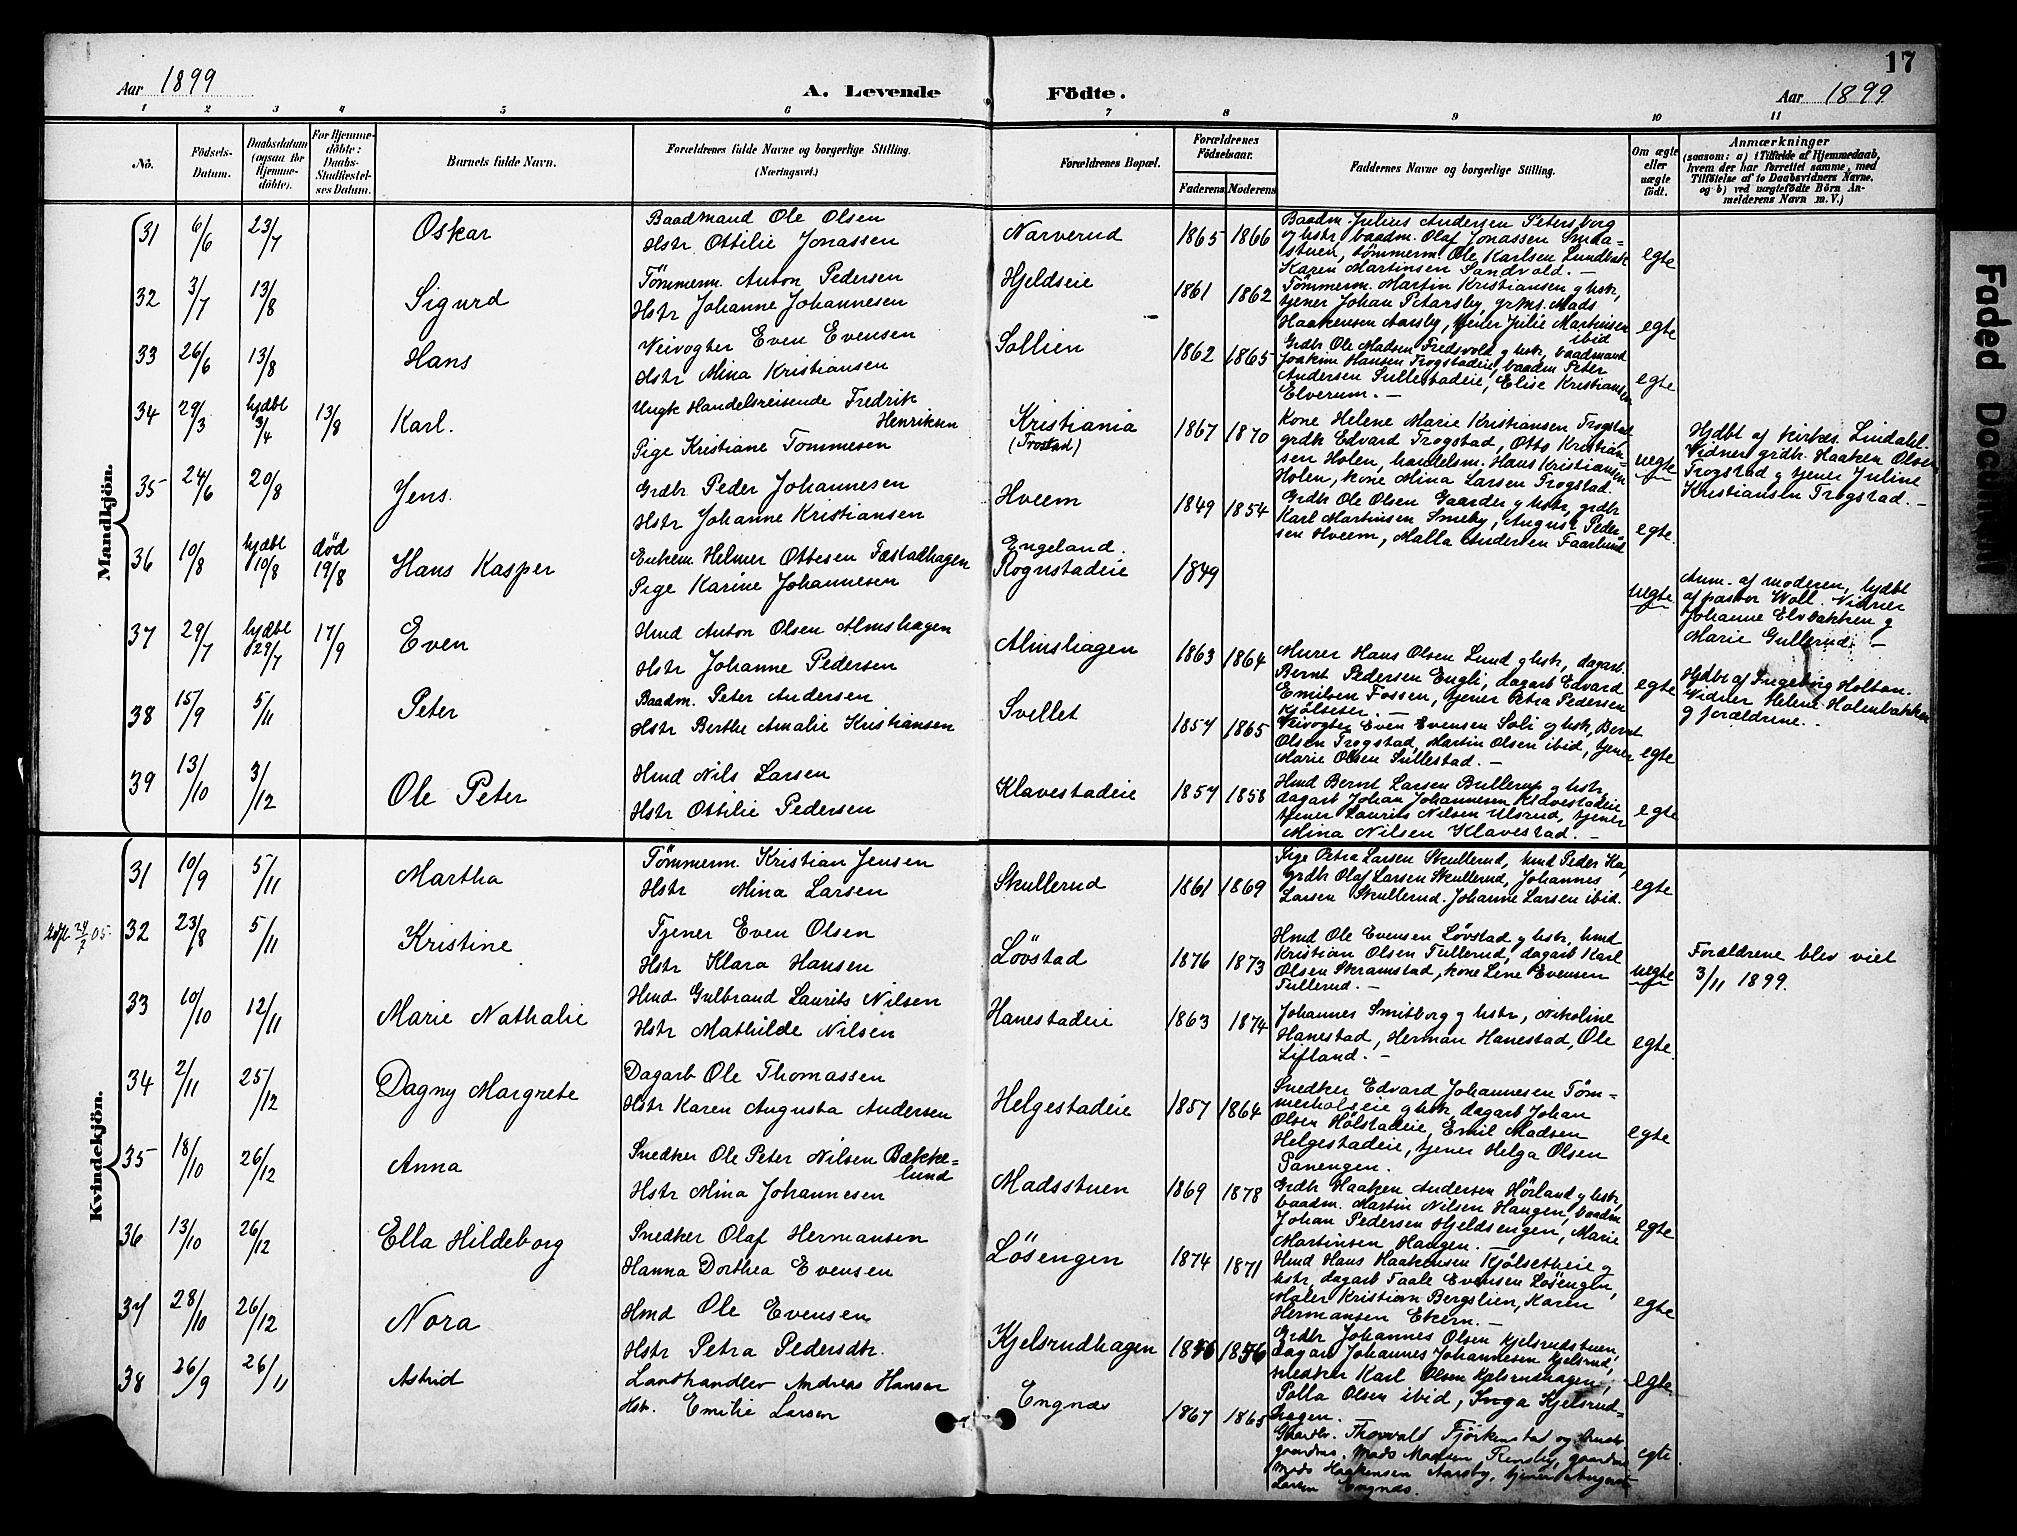 17
Aar 1899
A. Levende
Födte.
Aar 1899
1 2 3 4 5 6 7 8 9 10 11
No.
Födsels-Datum.
Daabsdatum (ogsaa for Hjemme-döbte).
For Hjemme-döbte: Daabs-Stadfæstel-ses Datum.
Barnets fulde Navn.
Forældrenes fulde Navne og borgerlige Stilling. (Næringsvei.)
Forældrenes Bopæl.
Forældrenes Födselsaar.
Faderens Moderens
Faddernes Navne og borgerlige Stilling.
Om ægte eller uægte födt.
Anmærkninger
(saasom: a) i Tilfælde af Hjemmedaab, hvem der har forrettet samme, med Tilföielse af to Daabsvidners Navne, og b) ved uægtefödte Börn An-melderens Navn m.V.)
Faded Document
Mandkjön.
31 6/6 23/7 Oskar
Baadmand Ole Olsen
Hstr Ottilie Jonassen
Narverud 1865 1866
Baadm. Julius Andersen Petersborg
g hstr, baadm. Olaf Jonassen Smda=
stuen, tømmerm. Ole Karlsen Lundbak
Karen Martinsen Sandvold. —
egte
32 3/7 13/8 Sigurd
Tömmerm. Anton Pedersen
Hstr Johanne Johannesen
Hjeldseie 1861 1862
Tømmerm. Martin Kristiansen g hstr,
tjener Johan Petarsby, grms. Mads
Haakensen Aarsby, tjener Julie Martinsen
ibid
egte
33 26/6 13/8 Hans
Veivogter Even Evensen
Hstr Mina Kristiansen
Sollien 1862 1865
Grdbr Ole Madsen Fredsvold g hstr, baadmand
Joakim Hansen Trogstadeie, baadm Peter
Andersen Sullestadeie, Elise Kristiansen
Elverum. —
egte
34 29/3 hjdbt 3/4 13/8 Karl.
Ungk Handelsreisende Fredrik
Henriksen
Pige Kristiane Tommesen
Kristiania
(Trostad)
1867 1870
Kone Helene Marie Kristiansen Trogstad
grdbr Edvard Trogstad, Otto Kristian=
sen Holen, handelsm. Hans Kristiansen
Holen, kone Mina Larsen Trogstad.
uegte
Hjdbt af kirkes. Lindahl.
Vidner grdbr. Haaken Olsen
Trogstad g tjener Juline
Kristiansen Trogstad. —
35 24/6 20/8 Jens.
Grdbr Peder Johannesen
Hstr Johanne Kristiansen
Hveem 1849 1854
Grdbr Ole Olsen Gaarder g hstr, grdbr
Karl Martinsen Smeby, August Peder=
sen Hveem, Malla Andersen Faarlund
egte.
36 10/8 hjdbt 10/8 død 19/8 Hans Kasper
Enkem Helmer Ottesen Fæstadhagen
Pige Karine Johannesen
Engeland.
Rognstadeie
1849
uegte
Anm. af moderen, hjdbt
af pastor Woll. Vidner
Johanne Elvbakken g
Marie Gullerud. —
37 29/7 hjdbt 29/7 17/9 Even
Hmd Anton Olsen Almshagen
Hstr Johanne Pedersen
Almshagen 1863 1864
Murer Hans Olsen Lund g hstr, dagarb.
Bernt Pedersen Engli, dagarb Edvard
Emilsen Fossen, tjener Petra Pedersen
Kjølseter. —
egte
Hjdbt af Ingeborg Holton.
Vidner Helene Holenbakken
g forældrene.
38 15/9 5/11 Peter
Baadm. Peter Andersen
Hstr Berthe Amalie Kristiansen
Svellet 1857 1865
Veivogter Even Evensen Soli g hstr, Bernt
Olsen Trogstad, Martin Olsen ibid, tjener
Marie Olsen Sullestad. —
egte
39 13/10 3/12 Ole Peter
Hmd Nils Larsen
Hstr Ottilie Pedersen
Klavestadeie 1857 1858
Hmd Bernt Larsen Bullerup g hstr,
dagarb Johan Johannesen Klavestadeie
tjener Laurits Nilsen Ulsrud, tjener
Mina Nilsen Klavestad. —
egte
Kvindekjön.
31 10/9 5/11 Martha
Tømmerm. Kristian Jensen
Hstr Mina Larsen
Skullerud 1861 1869
Pige Petra Larsen Skullerud, hmd Peder Ka,
grdbr Olaf Larsen Skullerud, Johannes
Larsen Skullerud. Johanne Larsen ibid.
egte
05
32 23/8 5/11 Kristine
Tjener Even Olsen
Hstr Klara Hansen
Løvstad 1876 1873
Hmd Ole Evensen Løvstad g hstr, hmd
Kristian Olsen Tullerud, dagarb Karl
Olsen Skramstad, kone Lene Evensen
Tullerud. —
uegte
Forældrene blev viet
3/11 1899.
33 10/10 12/11 Marie Nathalie
Hmd Gulbrand Laurits Nilsen
Hstr Mathilde Nilsen
Hanestadeie 1863 1874
Johannes Smitborg g hstr, Nikoline
Hanestad, Herman Hanestad, Ole
Lifland. —
egte.
34 2/11 25/12 Dagny Margrete
Dagarb Ole Thomassen
Hstr Karen Augusta Andersen
Helgestadeie 1857 1864
Snedker Edvard Johannesen Tøm=
merholseie g hstr, dagarb Johan
Olsen Holstadeie, Emil Madsen
Helgestadeie, tjener Helga Olsen
Panengen.
egte
35 18/10 26/12 Anna
Snedker Ole Peter Nilsen Bække=
lund
Hstr Mina Johannesen
Madsstuen 1869 1878
Grdbr Haaken Andersen Hørland g hstr,
baadm. Martin Nilsen Haugen, baadm
Johan Pedersen Hjeldsengen, Marie
Martinsen Haugen. —
egte
36 13/10 26/12 Ella Hildeborg
Snedker Olaf Hermansen
Hanna Dorthea Evensen
Løsengen 1874 1871
Hmd Hans Haakensen Kjølsetheie g
hstr, dagarb Paale Evensen Løsengen,
Maler Kristian Bergslien, Karen
Hermansen Ekern. —
egte
37 28/10 26/12 Nora
Hmd Ole Evensen
Hstr Petra Pedersdtr.
Kjelsrudhagen 1856 1856
Grdbr Johannes Olsen Kjelsrudstuen,
dagarb Johannes Johannesen Kjelsrud,
snedker Karl Olsen Kjelsrudhagen,
Polla Olsen ibid, Inga Kjelsrud=
hagen.
egte
38 26/9 26/11 Astrid
Landhandler Andreas Hansen
Hstr. Emilie Larsen
Engnæs 1867 1865
Gaardbr. Thorvald Fjörkenstad og hustr
gaardms, Mads Madsen Rensby, gaardms
Mads Haakensen Aarsby, tjener August
Larsen Engnæs.
egte